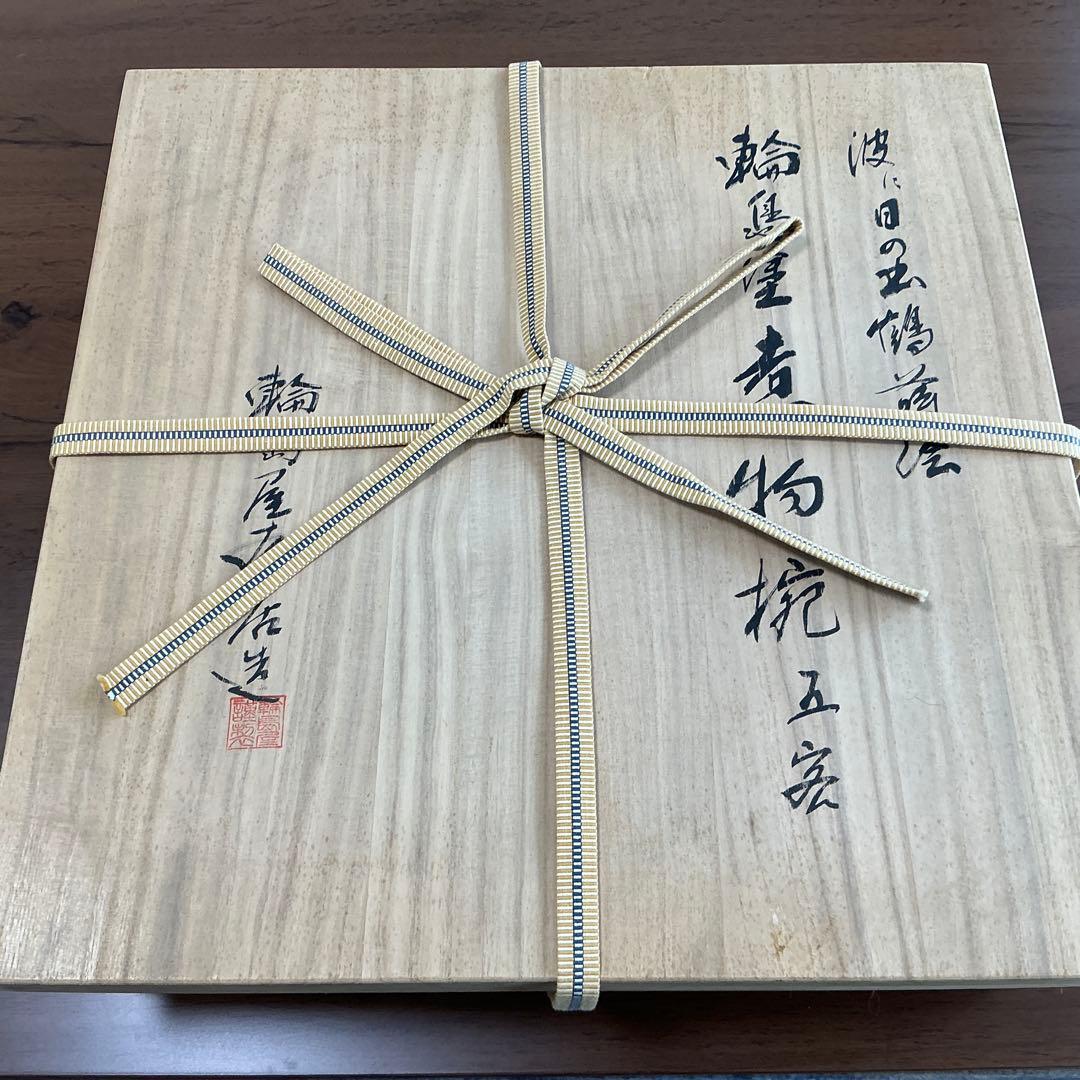 波に日の出鶴蒔絵
輪島塗煮物椀 五客
輪島屋 造